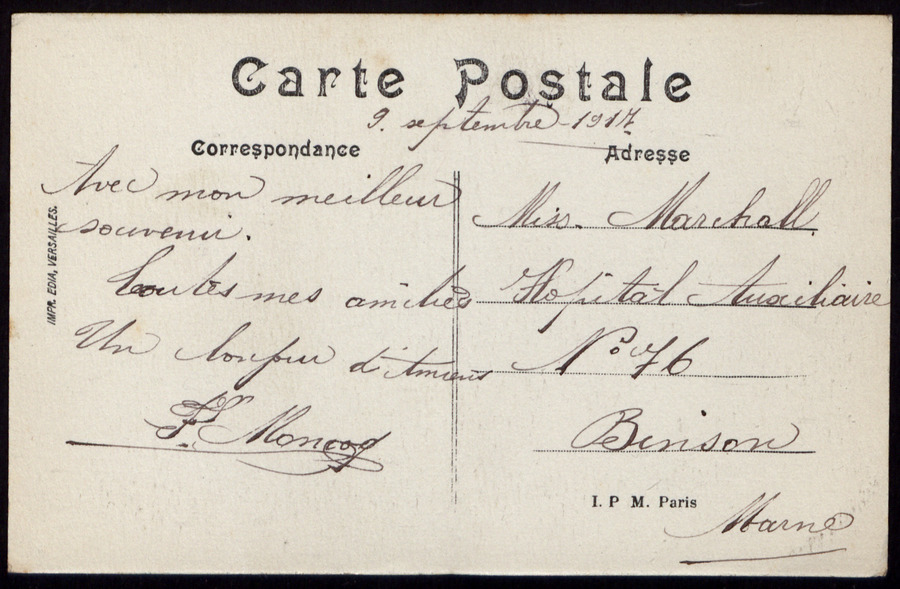 Carte Postale
9. septembre - 1917
Correspondance
Avec mon meilleur
souvenir.
Toutes mes amitiés
Un bonjour d'Amiens
Adresse
Miss. Marchall.
Hopital Auxiliaire
No 76
Binson
Marne
I. P. M. Paris
IMPR. EDIA, VERSAILLES.